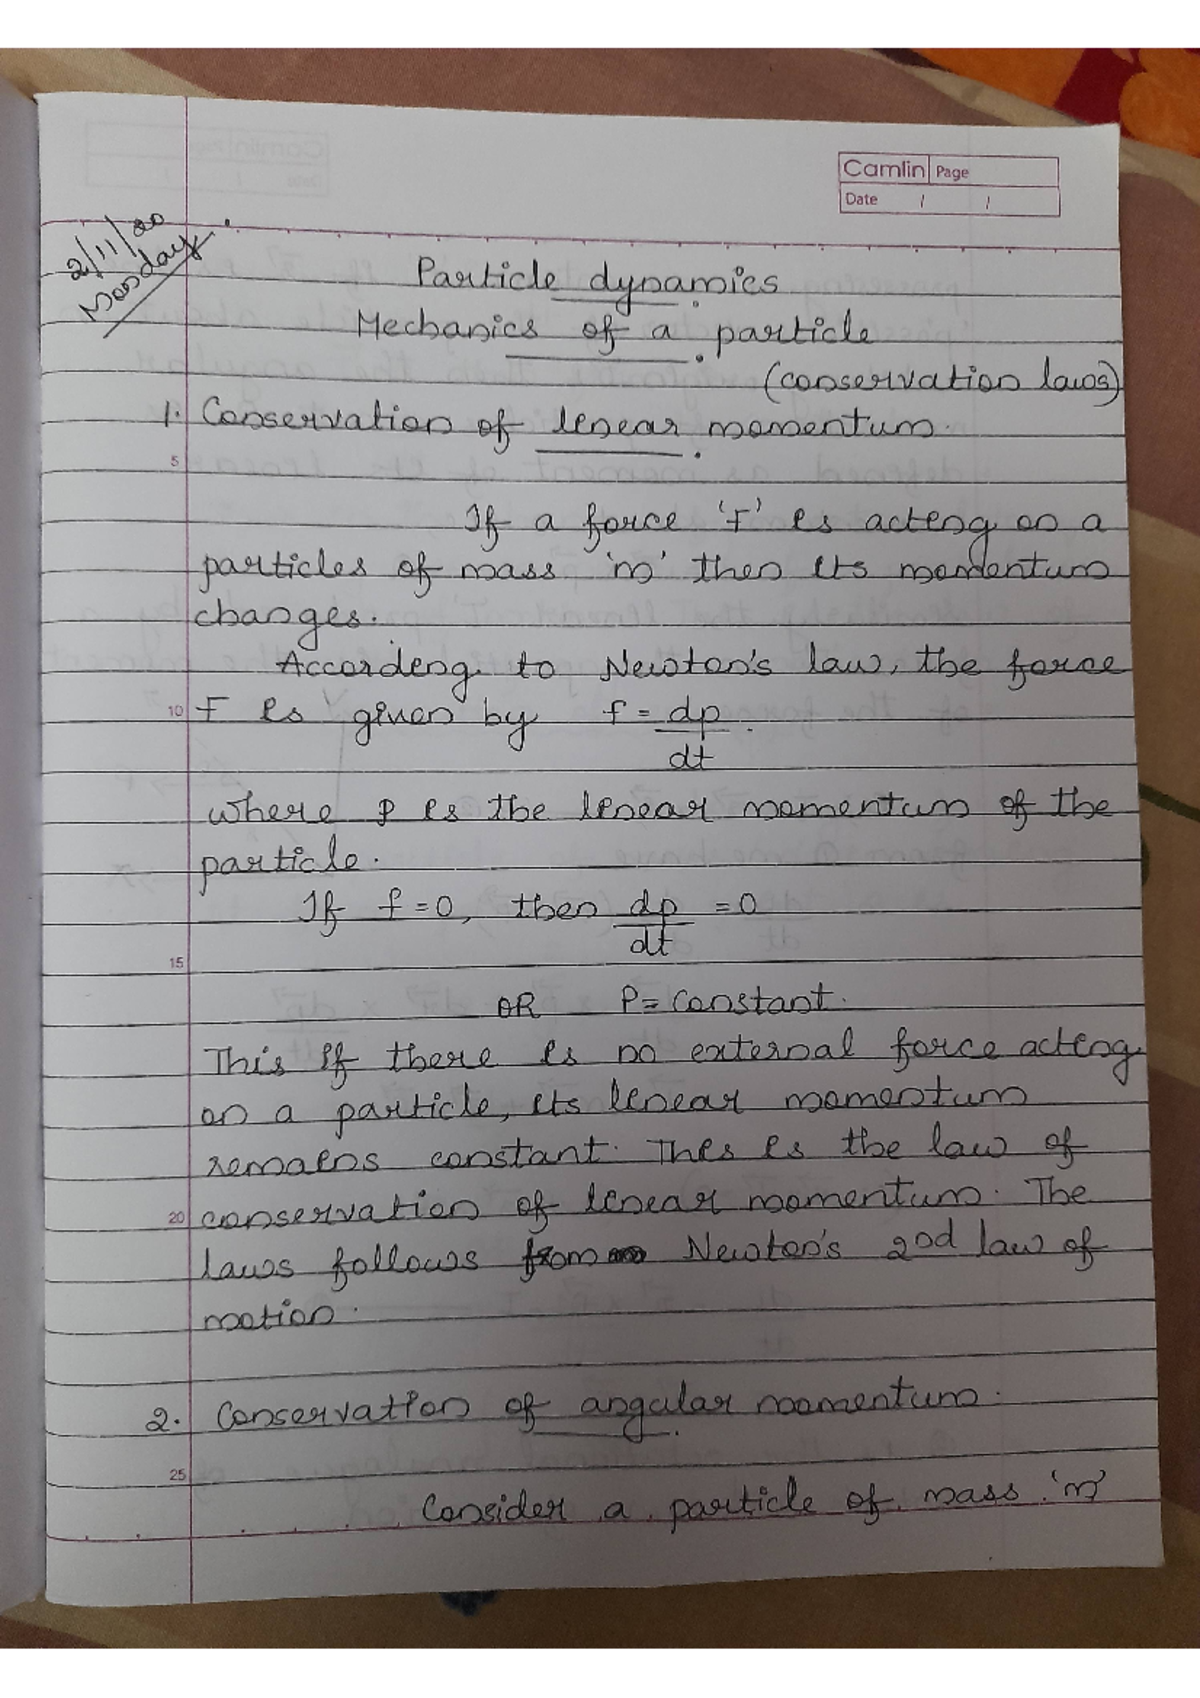 Camlin Page
Date / /
2/11/20
Monday
Particle dynamics
Mechanics of a particle
(conservation laws)
1. Conservation of linear momentum.
5
If a force 'F' is acting on a
particles of mass 'm' then its momentum
changes.
According to Newton's law, the force
10 F is given by f = dp
dt
where p is the linear momentum of the
particle.
If f = 0, then dp = 0
dt
15
OR P = constant.
This if there is no external force acting
on a particle, its linear momentum
remains constant. This is the law of
20 conservation of linear momentum. The
laws follows from Newton's 2nd law of
motion.
2. Conservation of angular momentum.
25
Consider a particle of mass 'm'